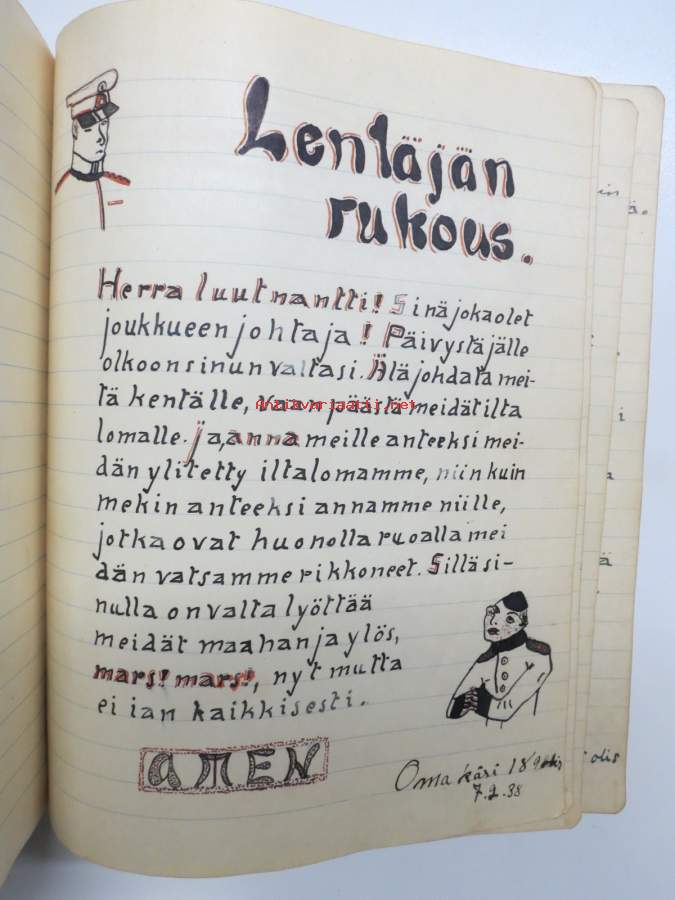 Lentäjän
rukous.
Herra luutnantti! Sinä joka olet
joukkueen johtaja! Päivystäjälle
olkoon sinun valtasi. Älä johdata mei-
tä kentälle, vaan päästä meidät ilta
Antikvariaatti.net
lomalle. Ja, anna meille anteeksi mei-
dän ylitetty iltalomamme, niin kuin
mekin anteeksi annamme niille,
jotka ovat huonolla ruoalla mei
dän vatsamme rikkoneet. Sillä si-
nulla on valta lyöttää
meidät maahan ja ylös,
mars! mars!, nyt mutta
ei ian kaikkisesti.
AMEN
Oma käsi 18
7.2.38
olis